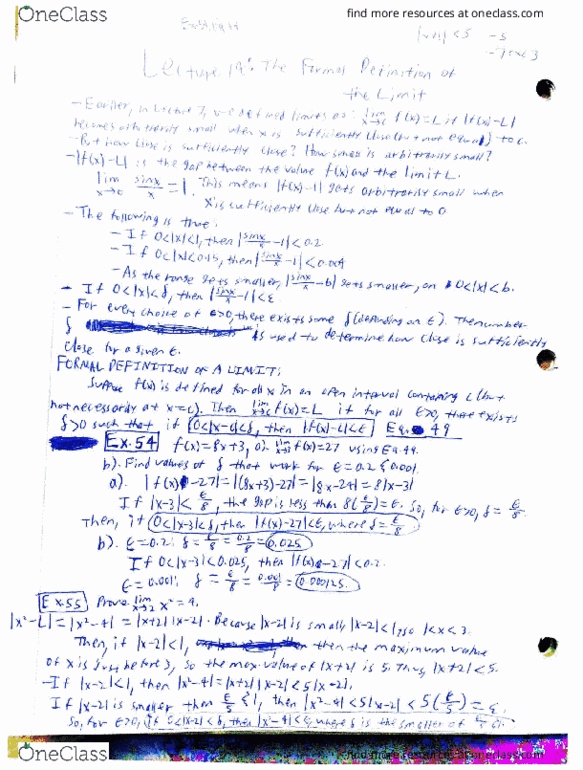 OneClass
find more resources at oneclass.com
|x+2|<5 -5
-7<x<3
Lecture 19: The Formal Definition of
the Limit
- Earlier, in Lecture 7, we defined limits as: lim x→c f(x)=L if |f(x)-L|
becomes arbitrarily small when x is sufficiently close (but not equal) to c.
- But how close is sufficiently close? How small is arbitrarily small?
- |f(x)-L| is the gap between the value f(x) and the limit L.
lim x→0 sinx/x = 1. This means |f(x)-1| gets arbitrarily small when
x is sufficiently close but not equal to 0.
- The following is true:
- If 0<|x|<1, then |sinx/x -1|<0.2
- If 0<|x|<0.15, then |sinx/x -1|<0.004
- As the range gets smaller, |sinx/x -b| gets smaller, on 0<|x|<b.
- If 0<|x|<δ, then |sinx/x -1|<ε.
- For every choice of ε>0, there exists some δ (depending on ε). The number
δ is used to determine how close is sufficiently
close for a given ε.
FORMAL DEFINITION OF A LIMIT:
Suppose f(x) is defined for all x in an open interval containing c (but
not necessarily at x=c). Then lim x→c f(x)=L if for all ε>0, there exists
δ>0 such that if 0<|x-c|<δ, then |f(x)-L|<ε Eq. 49
Ex. 54 f(x)=8x+3, a). lim x→3 f(x)=27 using Eq. 49.
b). Find values of δ that work for ε=0.2 & 0.001.
a). |f(x)-27|=|(8x+3)-27|=|8x-24|=8|x-3|
If |x-3|<ε/8, the gap is less than 8(ε/8)=ε. So, for ε>0, δ=ε/8.
Then, if 0<|x-3|<δ, then |f(x)-27|<ε, where δ=ε/8
b). ε=0.2: δ=ε/8=0.2/8=0.025
If 0<|x-3|<0.025, then |f(x)-27|<0.2.
ε=0.001: δ=ε/8=0.001/8=0.000125.
Ex. 55 Prove lim x→2 x²=4.
|x²-L|=|x²-4|=|x+2||x-2|. Because |x-2| is small, |x-2|<1, so 1<x<3.
Then, if |x-2|<1, then the maximum value
of x is just before 3, so the max value of |x+2| is 5. Thus, |x+2|<5.
- If |x-2|<1, then |x²-4|=|x+2||x-2|<5|x-2|.
If |x-2| is smaller than ε/5 & 1, then |x²-4|<5|x-2|<5(ε/5)=ε.
So, for ε>0, if 0<|x-2|<δ, then |x²-4|<ε, where δ is the smaller of
OneClass
find more resources at oneclass.com